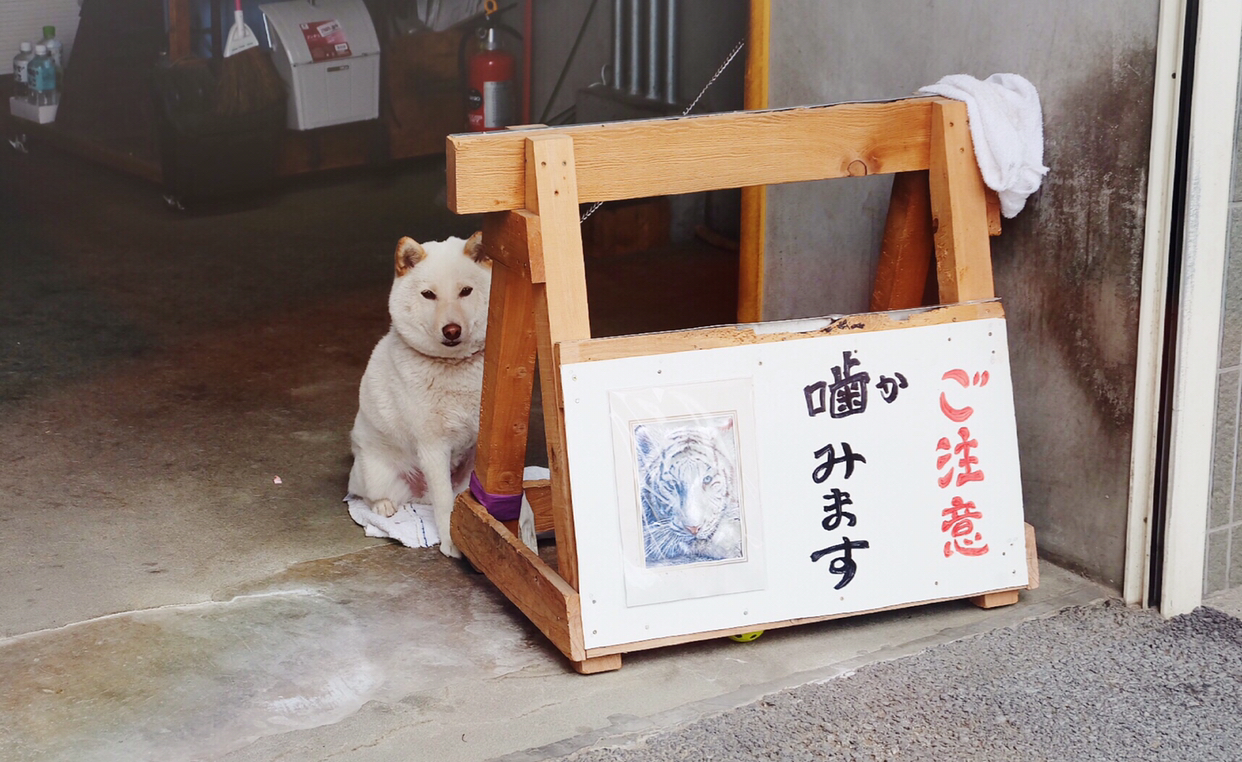 ご注意
噛みます
か